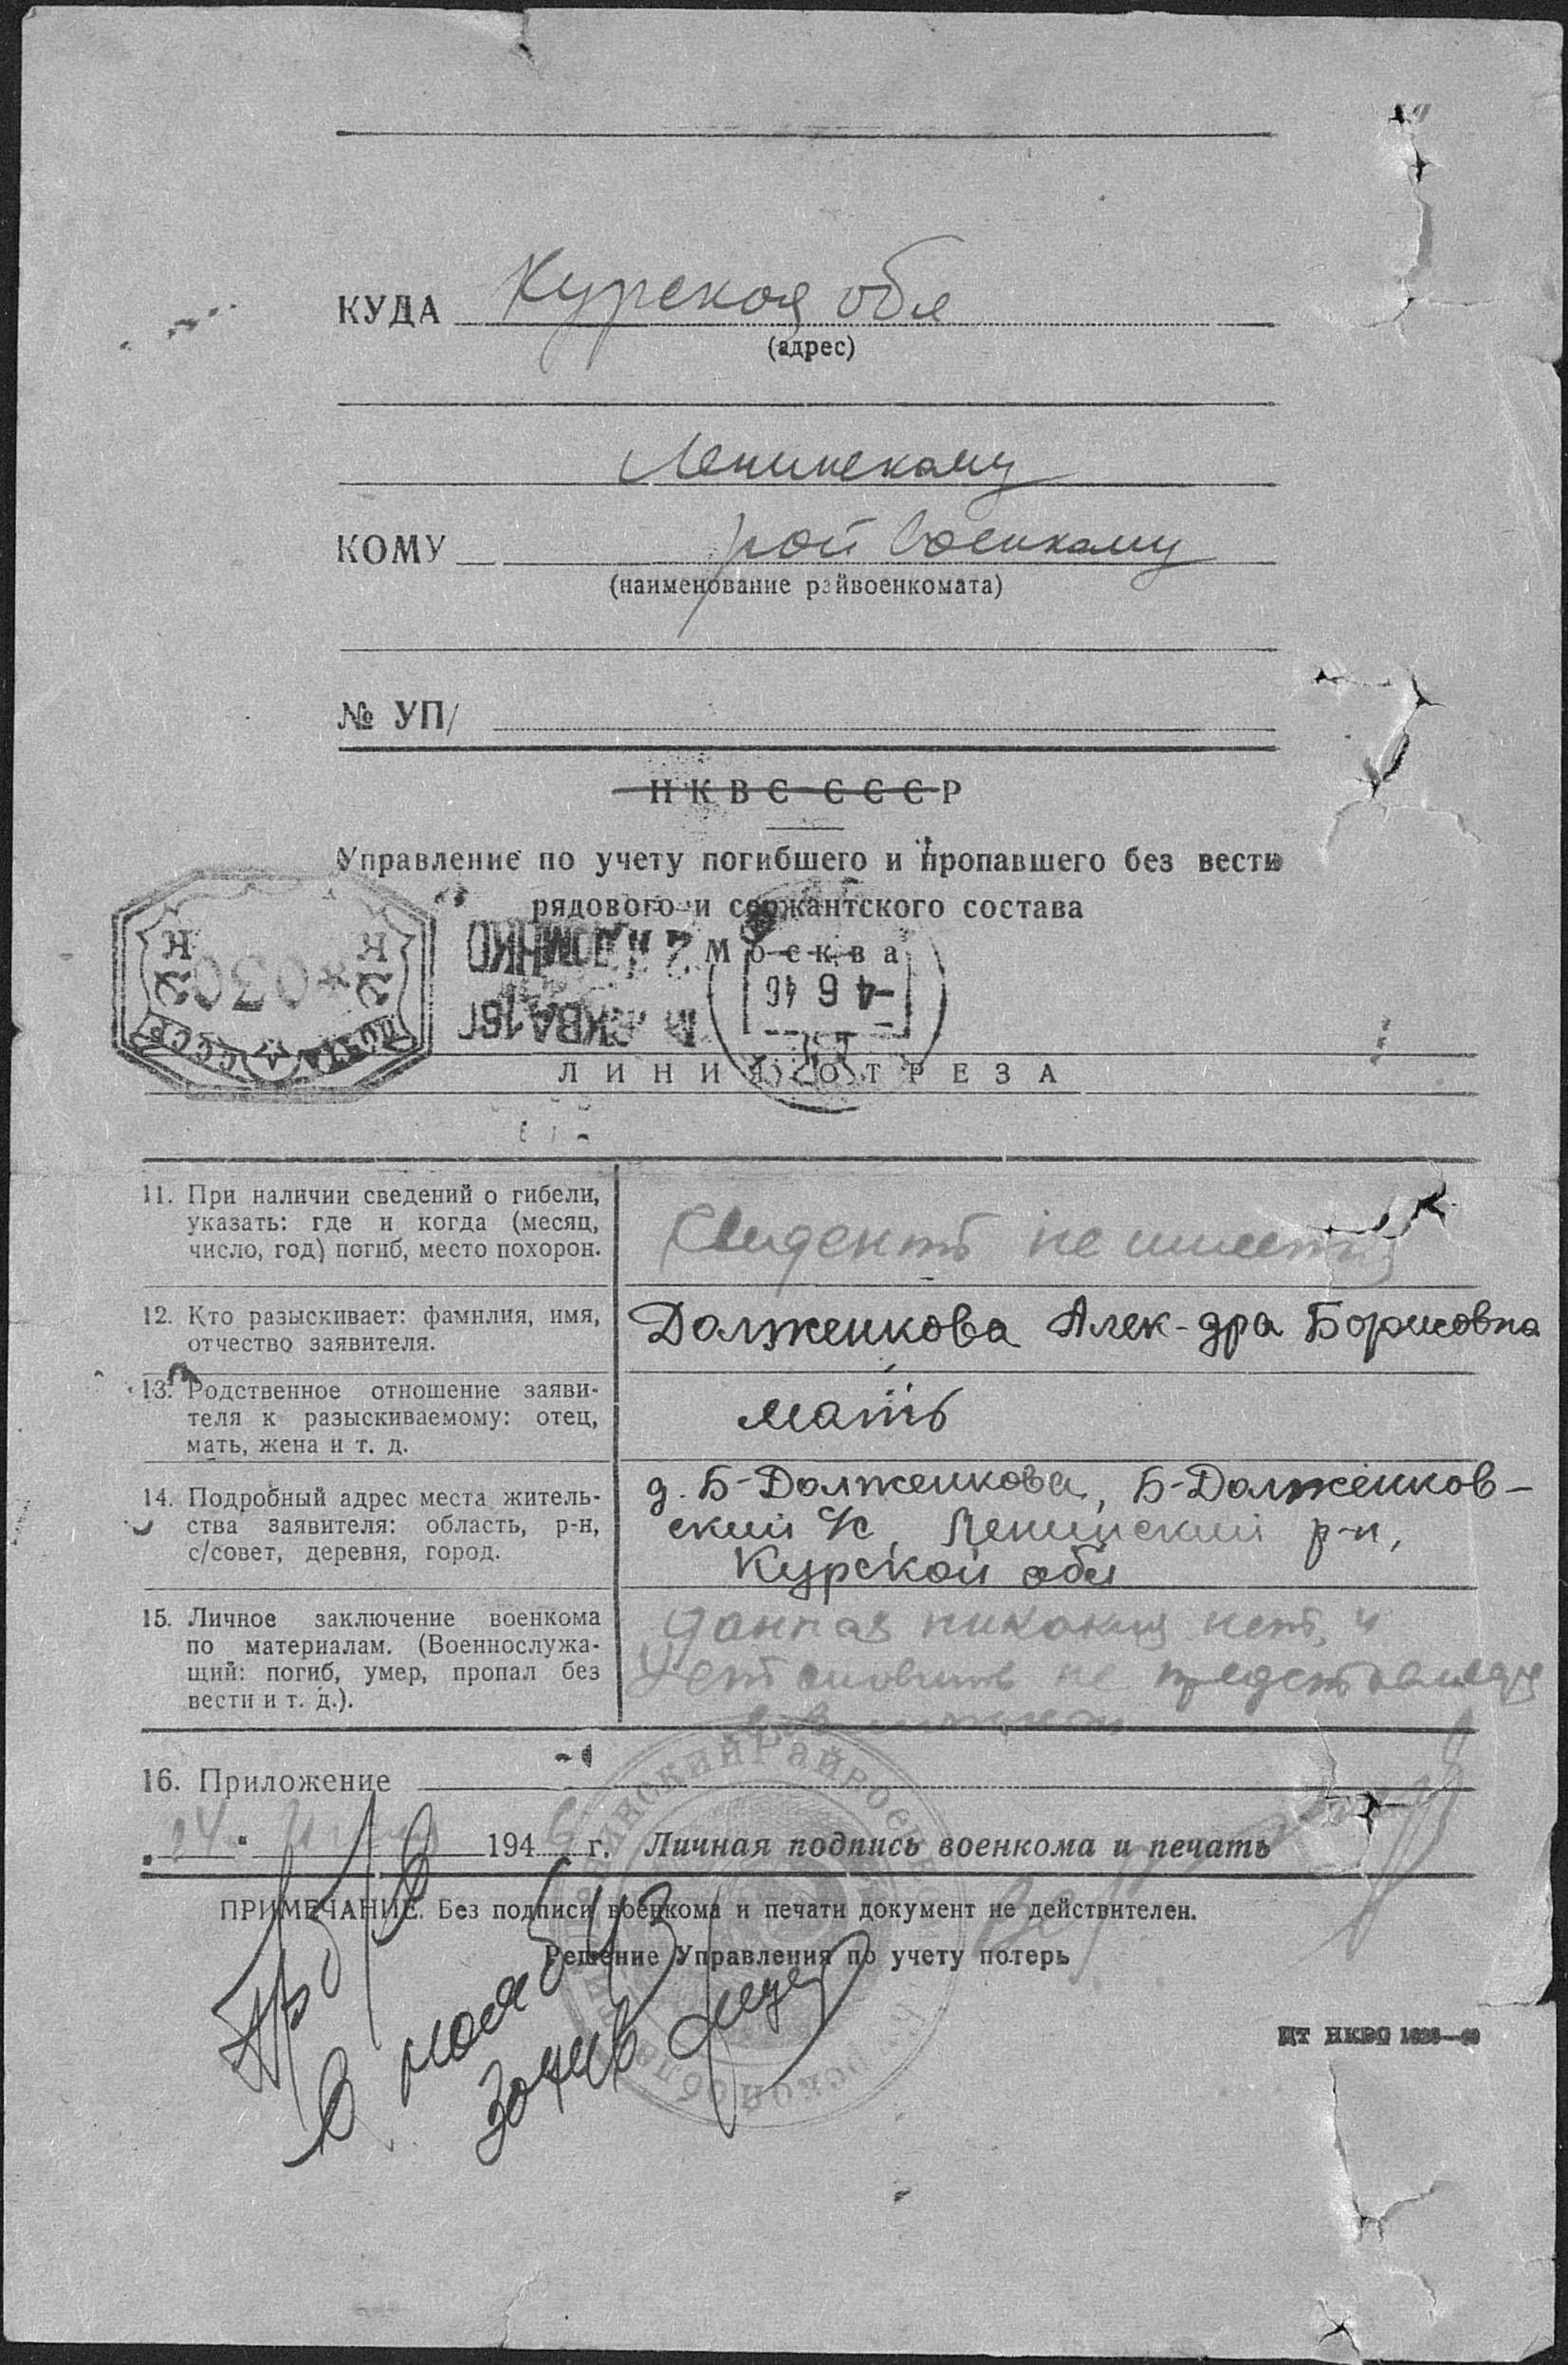 КУДА Курская обл
(адрес)
Ленинскому
КОМУ рай военкому
(наименование райвоенкомата)
№ УП/
НКВС СССР
Управление по учету погибшего и пропавшего без вести
рядового и сержантского состава
Москва
-4 6 46
ПОЧТА СССР
ЛИНИЯ ОТРЕЗА
11. При наличии сведений о гибели,
указать: где и когда (месяц,
число, год) погиб, место похорон.
не имеется
12. Кто разыскивает: фамилия, имя,
отчество заявителя.
Долженкова Алек-дра Борисовна
13. Родственное отношение заяви-
теля к разыскиваемому: отец,
мать, жена и т. д.
мать
14. Подробный адрес места житель-
ства заявителя: область, р-н,
с/совет, деревня, город.
д. Б-Долженкова, Б-Долженков-
ский с/с, Ленинский р-н,
Курской обл
15. Личное заключение военкома
по материалам. (Военнослужа-
щий: погиб, умер, пропал без
вести и т. д.).
никаких нет, и
установить не представляется
16. Приложение
"24" 194 г. Личная подпись военкома и печать
ПРИМЕЧАНИЕ. Без подписи военкома и печати документ не действителен.
Решение Управления по учету потерь
Цт НКВО